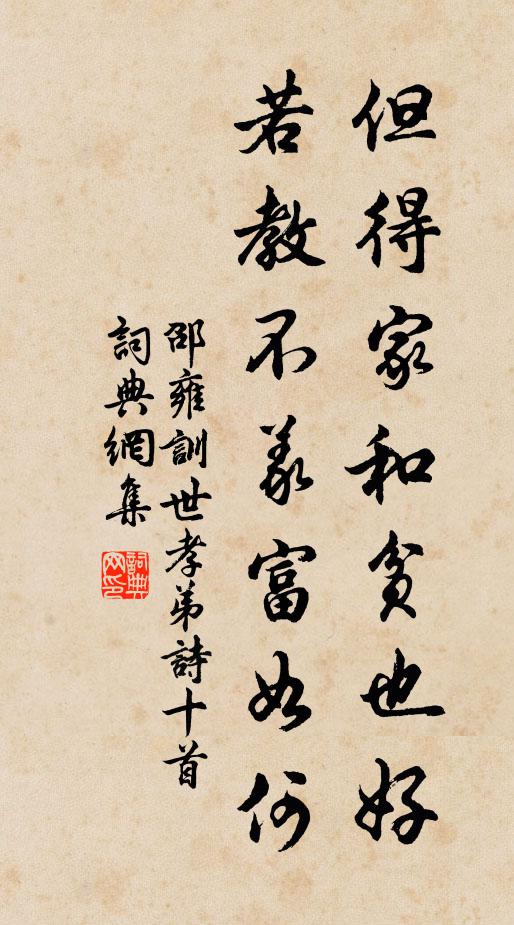 但得家和貧也好
若教不義富如何
邵雍訓世孝弟詩十首
詞典網集
詞典網印